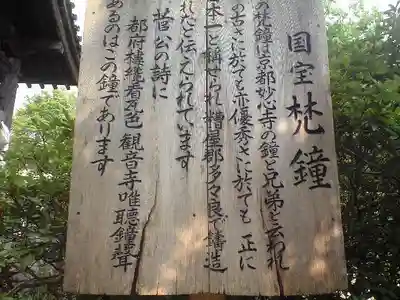 国宝梵鐘
の梵鐘は京都妙心寺の鐘と兄弟と云われ
の古さに於ても亦優秀さに於ても正に
本一と称せられ糟屋郡多々良で鋳造
れたと伝えられています
菅公の詩に
都府楼纔看瓦色観音寺唯聴鐘聲
あるのはこの鐘であります